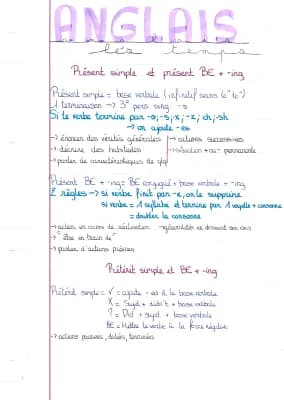 ANGLAIS
les temps
Présent simple et présent BE + -ing
Présent simple = base verbale (infinitif sans le "to")
1 terminaison → 3e pers. sing -s
Si le verbe termine par -o; -s; -x; -z; ch; -sh
→ on ajoute -es
→ énoncer des vérités générales → actions successives
→ décrire des habitudes → situation + ou - permanente
→ parler de caractéristiques de qqn
Présent BE + -ing = BE conjugué + base verbale + -ing
2 règles → si verbe finit par -e, on le supprime
si verbe = 1 syllabe et termine par 1 voyelle + consonne
= doubler la consonne
→ action en cours de réalisation
→ "être en train de"
→ parler d'actions prévues
Prétérit simple et BE + -ing
Prétérit simple = ✓ = ajoute -ed à la base verbale
X = Sujet + didn't + base verbale
? = Did + sujet + base verbale
BE = Mettre le verbe à la
→ actions passées, datées, terminées